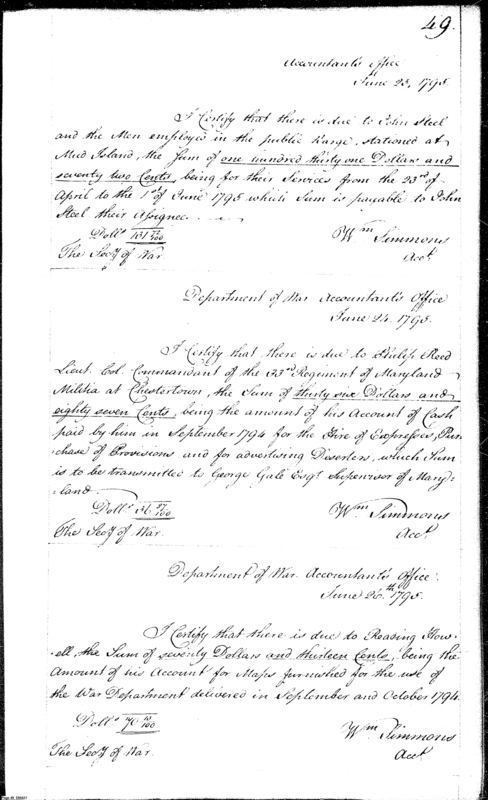 49.
Accountant's Office
June 23, 1795.
I Certify that there is due to John Steel
and the Men employed in the public barge, stationed at
Mud Island, the Sum of one hundred thirty one Dollars and
seventy two Cents, being for their Services from the 23rd of
April to the 1st of June 1795 which Sum is payable to John
Steel their Assignee.
Dolls 131 72/100
Wm Simmons
The Secy of War.
Acct
Department of War Accountant's Office
June 24 1795.
I Certify that there is due to Philip Reed
Lieut. Col. Commandant of the 33rd Regiment of Maryland
Militia at Chestertown, the Sum of thirty one Dollars and
eighty seven Cents, being the amount of his Account of Cash
paid by him in September 1794 for the Hire of Expresses, Pur
chase of Provisions and for advertising Deserters, which Sum
is to be transmitted to George Gale Esqr Supervisor of Mary-
land
Dolls 87/100
Wm Simmons
The Secy of War.
Acct
Department of War Accountant's Office
June 26th 1795.
I Certify that there is due to Reading How-
ell, the Sum of seventy Dollars and thirteen Cents, being the
Amount of his Account for Maps furnished for the use of
the War Department delivered in September and October 1794.
Dolls 70 13/100
Wm Simmons
The Secy of War.
Acct